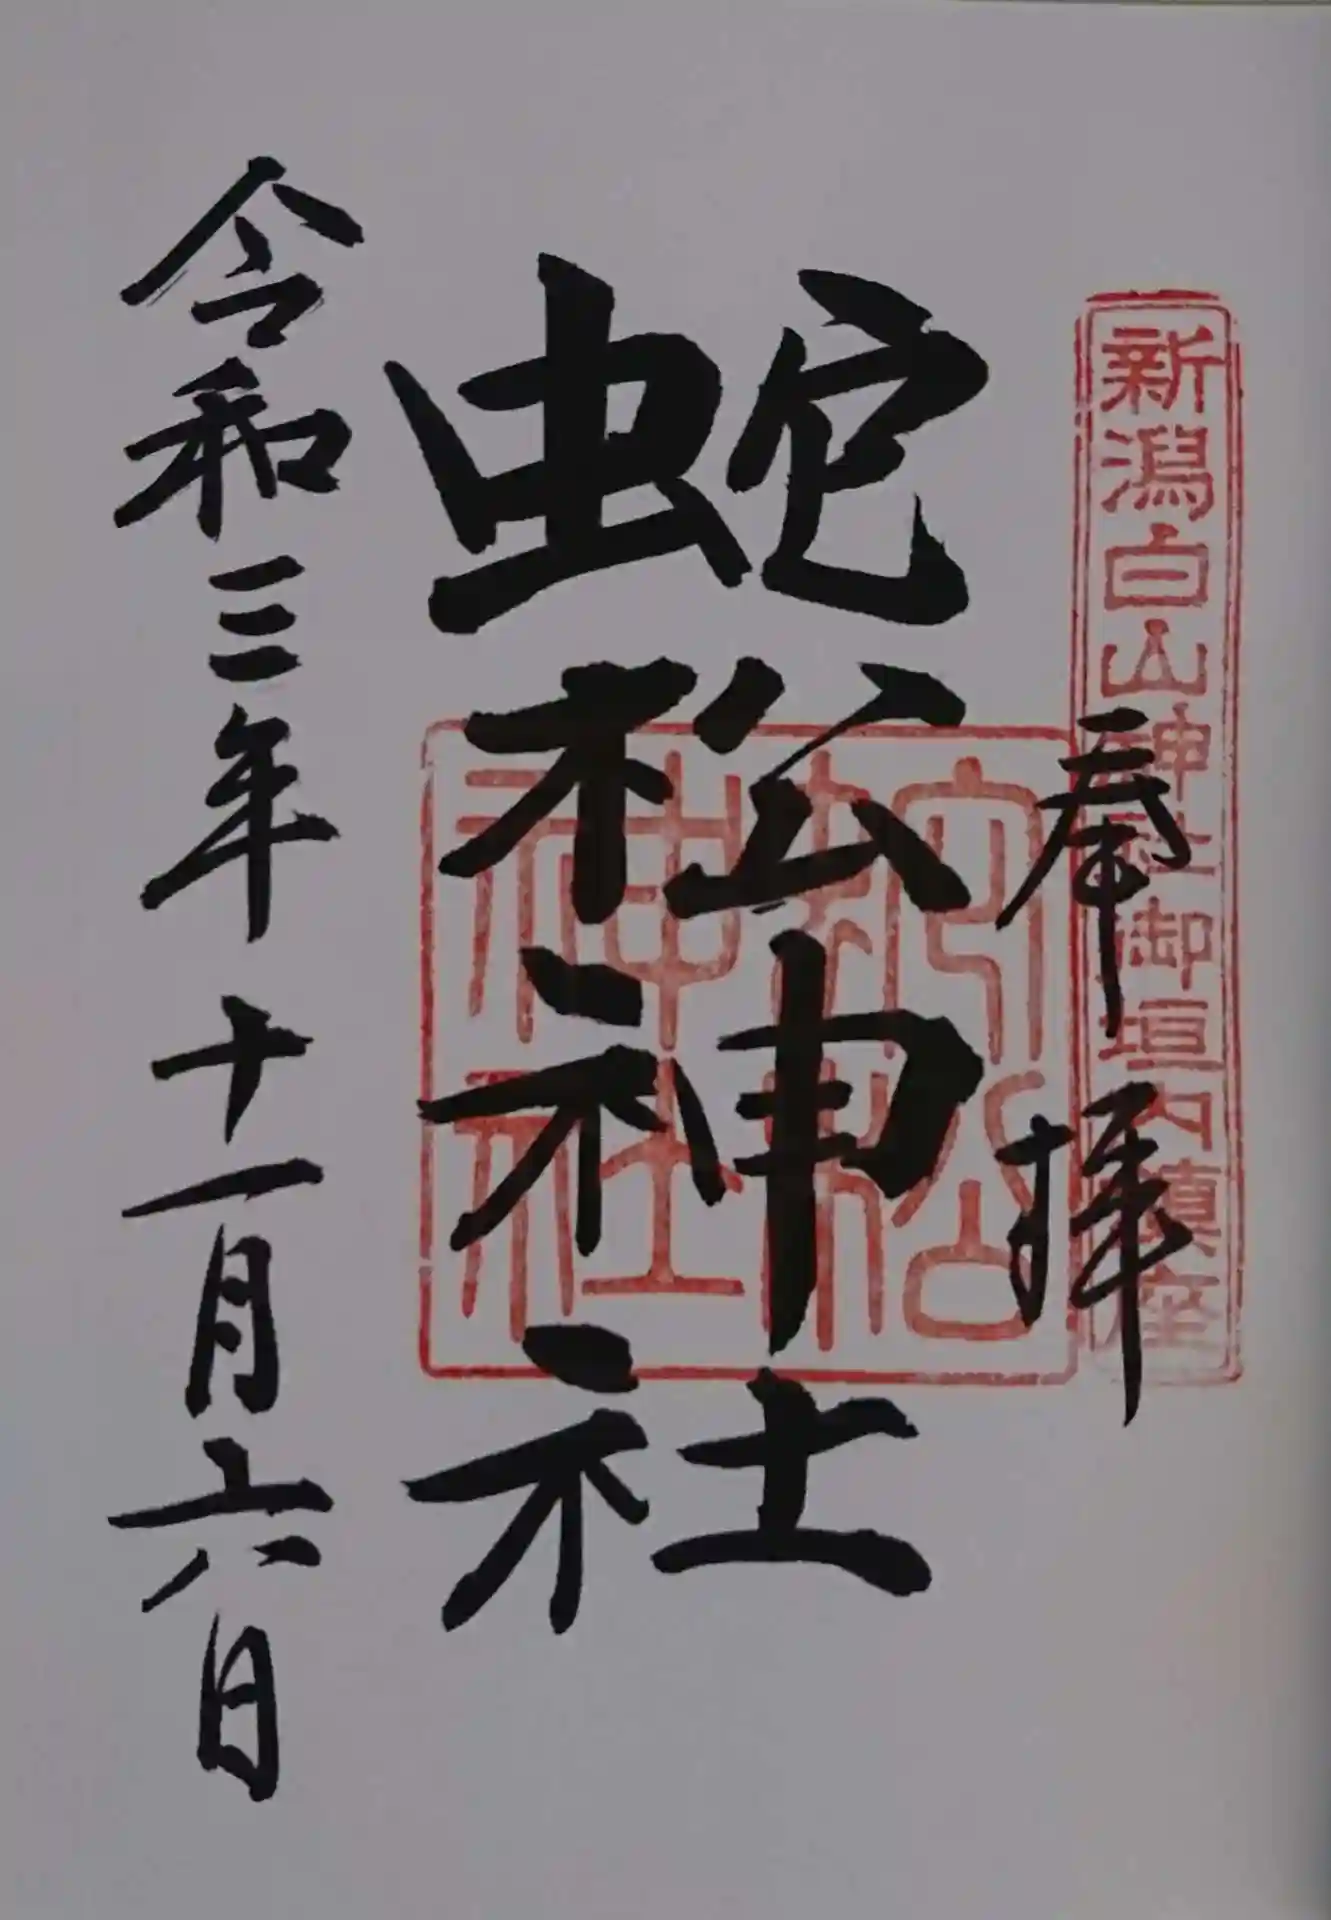 新潟白山神社御垣内鎮座
奉拝
蛇松神社
蛇松神社
令和三年十一月六日